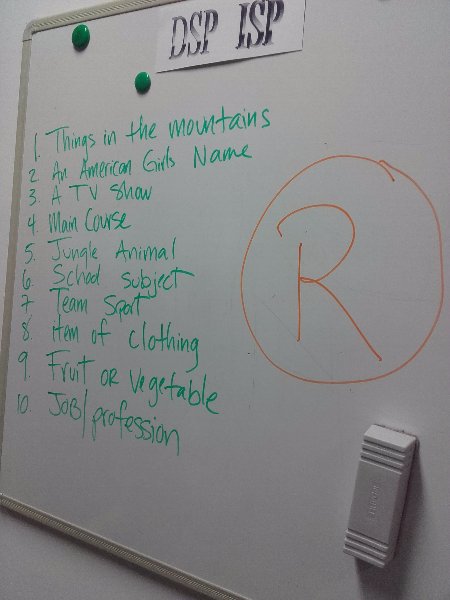 DSP ISP
1. Things in the mountains
2. An American Girls Name
3. A TV Show
4. Main Course
5. Jungle Animal
6. School subject
7. Team Sport
8. Item of clothing
9. Fruit or Vegetable
10. Job/profession
R